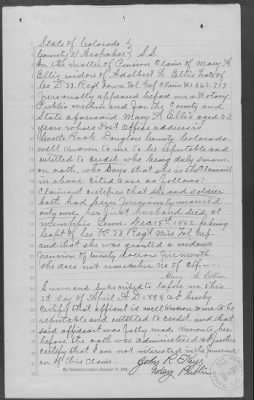 State of Colorado }
County of Arapahoe } S.S.
In the matter of Pension Claim of Mary A.
Ellis widow of Adalbert F. Ellis late of
Co D. 23, Regt Iowa Inf
Personally appeared before me a Notary
Public within and for the County and
State aforesaid Mary A Ellis aged
years whose Post Office address is
Castle Rock Douglas County Colorado.
well known to me to be reputable and
entitled to credit who being duly sworn
on oath, who says that she is the claimant
in above cited case as follows:
Claimant certifies that she and soldier
both had been previously married
only once, her first husband died at
Memphis Tenn Dec 18th he being
Capt of Co K 33, Regt Wis Vol Inf
and that she was granted a widows
Pension of twenty dollars per month
She does not remember No of Ctf.
Mary A Ellis
Sworn and subscribed to before me this
1st day of April A.D. 1898 & I hereby
certify that affiant is well known to me to be
reputable and entitled to credit and that
said affidavit was fully made known to her
before the oath was administered & I further
certify that I am not interested in the issuance
of this claim.
Notary Public
My Commission expires